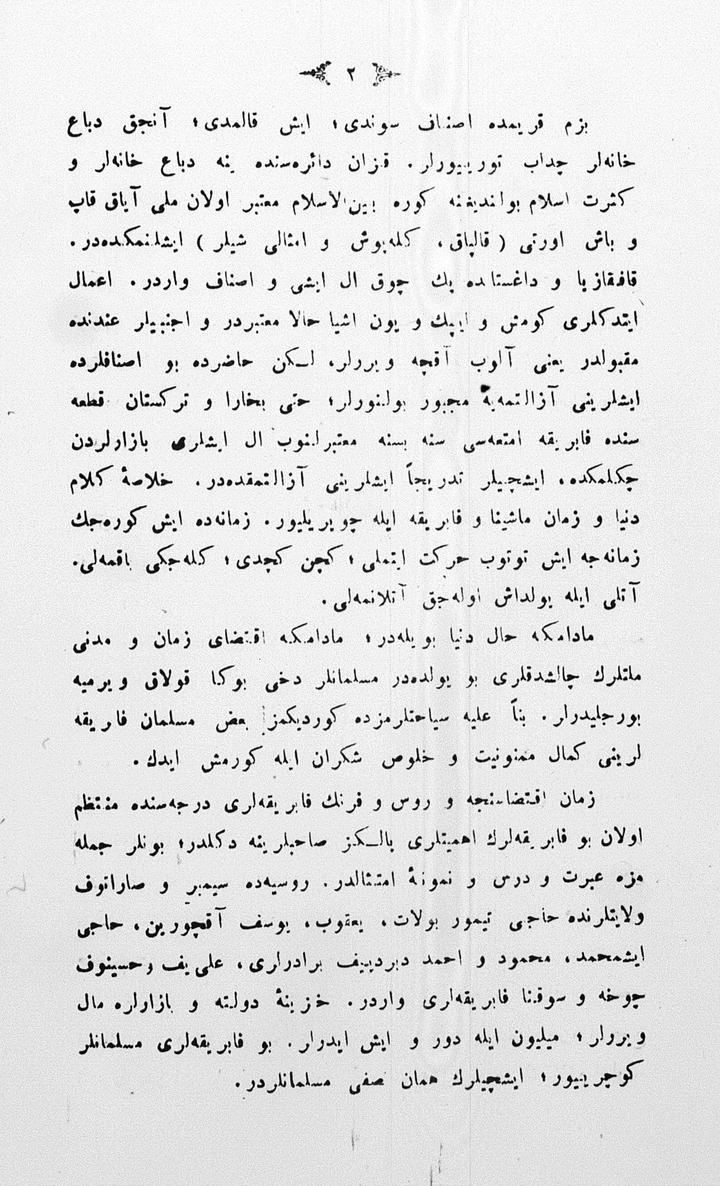 ٢
بزم قريمده اصناف سوندى؛ ايش قالمدى؛ آنجق دباغ
خانه‌لر چداب توريبورلر. قزان دائره‌سنده ينه دباغ خانه‌لر و
كثرت اسلام بولنديغنه كوره بين‌الاسلام معتبر اولان ملى آياق قاپ
و باش اورتى (قالپاق، كله‌پوش و امثالى شيلر) ايشلنمكده‌در.
قافقازيا و داغستانده پك چوق ال ايشى و اصناف واردر. اعمال
ايتدكلرى كومش و ايپك و يون اشيا حالا معتبردر و اجنبيلر عندنده
مقبولدر يعنى آلوب آقچه ويررلر، لـكن حاضرده بو اصنافلرده
ايشلرينى آزالتمه‌يه مجبور بولنورلر؛ حتى بخارا و تركستان قطعه
سنده فابريقه امتعه‌سى سنه بسنه معتبرلنوب ال ايشلرى بازارلردن
چكلمكده، ايشچيلر تدريجاً ايشلرينى آزالتمقده‌در. خلاصهٔ كلام
دنيا و زمان ماشينا و فابريقه ايله چويريليور. زمانه‌ده ايش كوره‌جك
زمانه‌جه ايش توتوب حركت ايتملى؛ كچن كچدى؛ كله‌جكى باقمه‌لى.
آتلى ايله يولداش اوله‌جق آتلانمه‌لى.
مادامكه حال دنيا بويله‌در؛ مادامكه اقتضاى زمان و مدنى
ملتلرك چالشدقلرى بو يولده‌در مسلمانلر دخى بوكا قولاق ويرميه
بورجليدرلر. بناً عليه سياحتلرمزده كورديكمز بعض مسلمان فابريقه
لرينى كمال ممنونيت و خلوص شكران ايله كورمش ايدك.
زمان اقتضاسنجه و روس و فرنك فابريقه‌لرى درجه‌سنده منتظم
اولان بو فابريقه‌لرك اهميتلرى يالـكز صاحبلرينه دكلدر؛ بونلر جمله
مزه عبرت و درس و نمونهٔ امتثالدر. روسيه‌ده سيمبر و صاراتوف
ولايتلرنده حاجى تيمور بولات، يعقوب، يوسف آقچورين، حاجى
ايشمحمد، محمود و احمد ديبردييف برادرلرى، على‌يف وحسينوف
چوخه و سوقنا فابريقه‌لرى واردر. خزينهٔ دولته و بازارلره مال
ويررلر؛ ميليون ايله دور و ايش ايدرلر. بو فابريقه‌لرى مسلمانلر
كوچرييور؛ ايشچيلرك همان صفى مسلمانلردر.